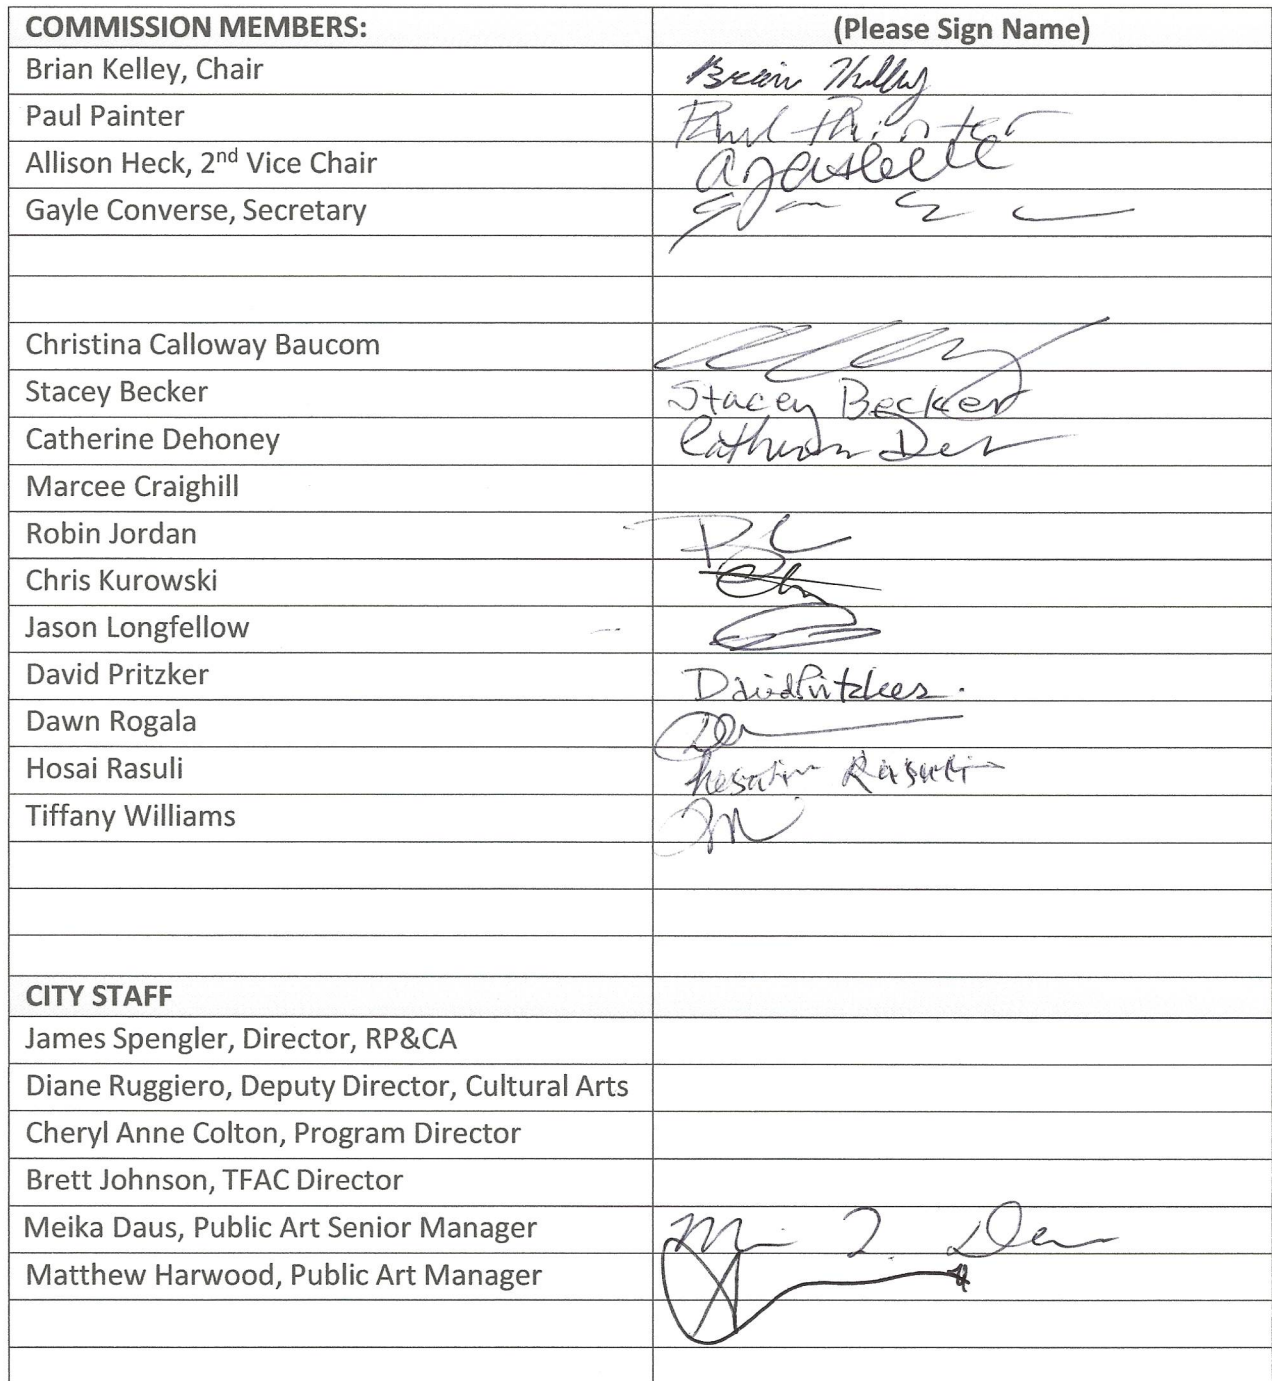 COMMISSION MEMBERS: (Please Sign Name)
Brian Kelley, Chair Brian Kelley
Paul Painter Paul Painter
Allison Heck, 2nd Vice Chair
Gayle Converse, Secretary
Christina Calloway Baucom
Stacey Becker Stacey Becker
Catherine Dehoney
Marcee Craighill
Robin Jordan
Chris Kurowski
Jason Longfellow
David Pritzker David Pritzker.
Dawn Rogala
Hosai Rasuli Rasuli
Tiffany Williams
CITY STAFF
James Spengler, Director, RP&CA
Diane Ruggiero, Deputy Director, Cultural Arts
Cheryl Anne Colton, Program Director
Brett Johnson, TFAC Director
Meika Daus, Public Art Senior Manager
Matthew Harwood, Public Art Manager